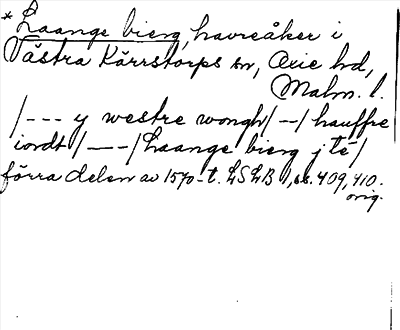 * Laange bierg, havreåker i
Västra Kärrstorps sn, Oxie hd,
Malm. l.
/--- y westre wongh/--/hauffre
iordt/---/Laange bierg j té/
förra delen av 1570-t. LSLB 1, ss. 409, 410.
orig.